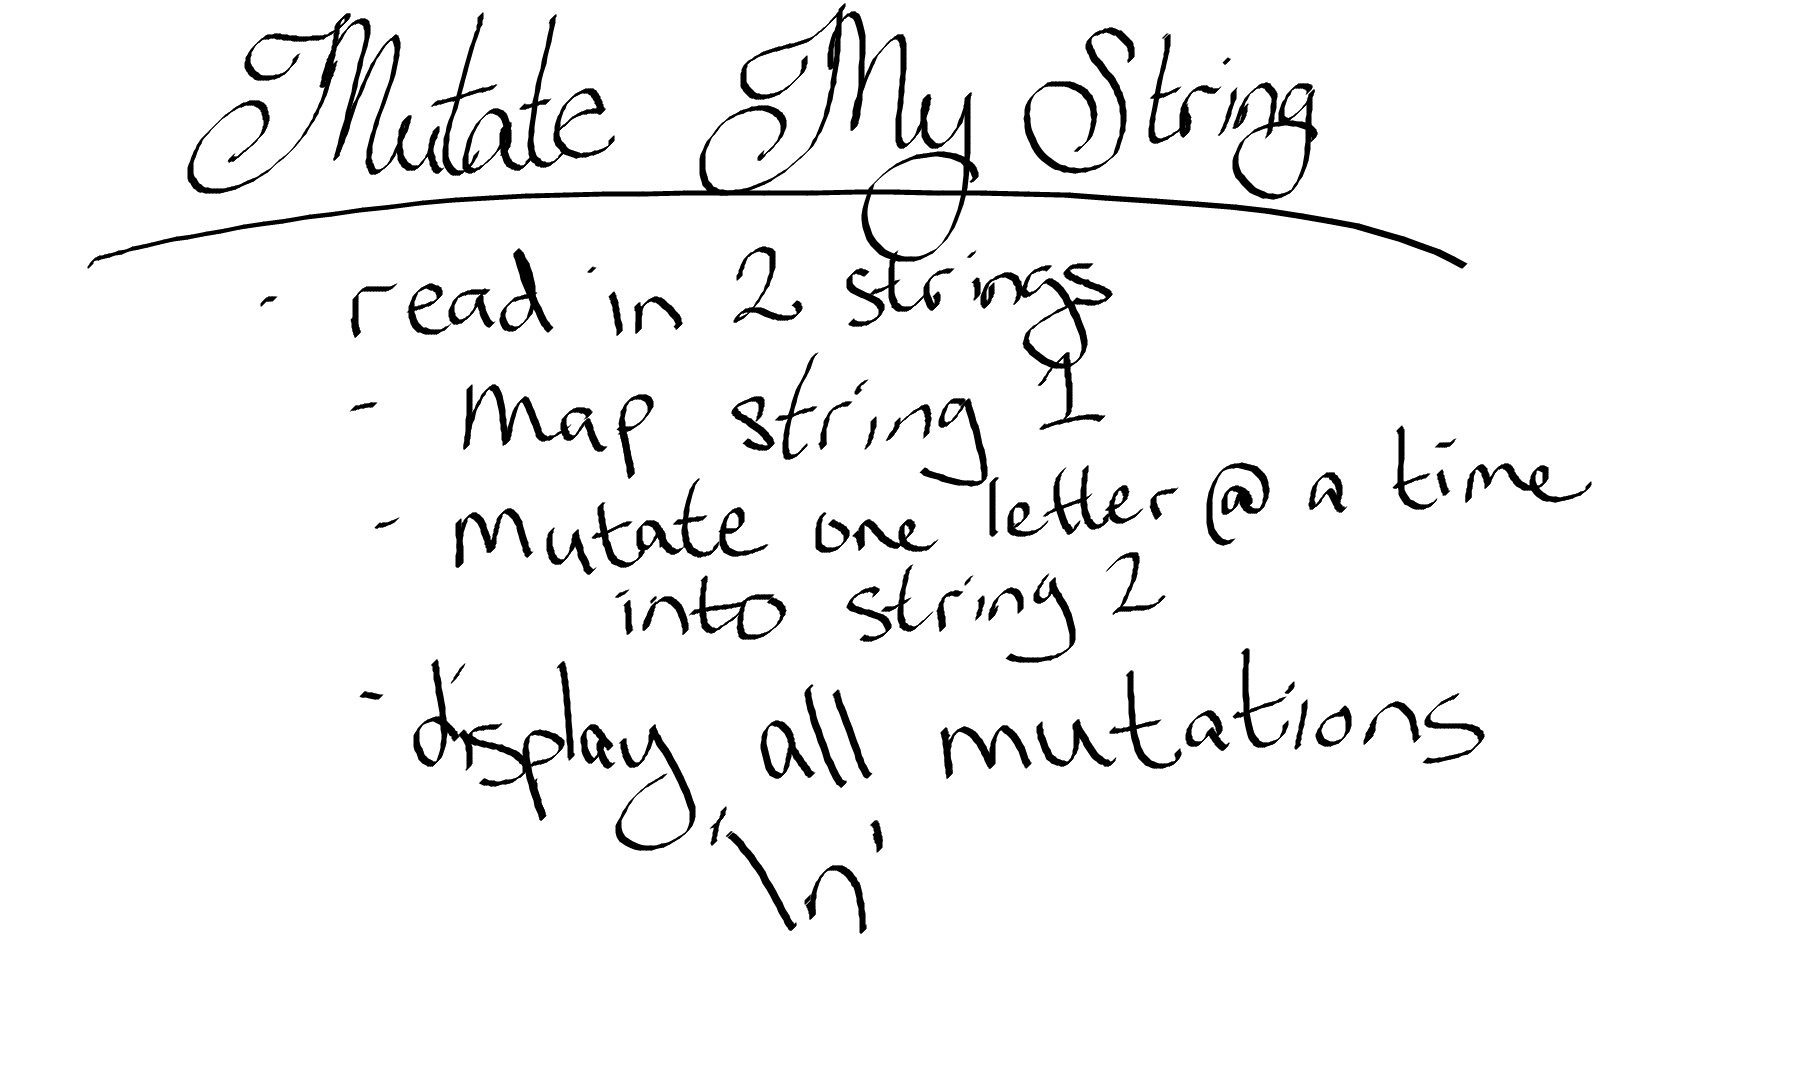 Mutate My String
- read in 2 strings
- Map string 1
- Mutate one letter @ a time
into string 2
- display all mutations
'\n'